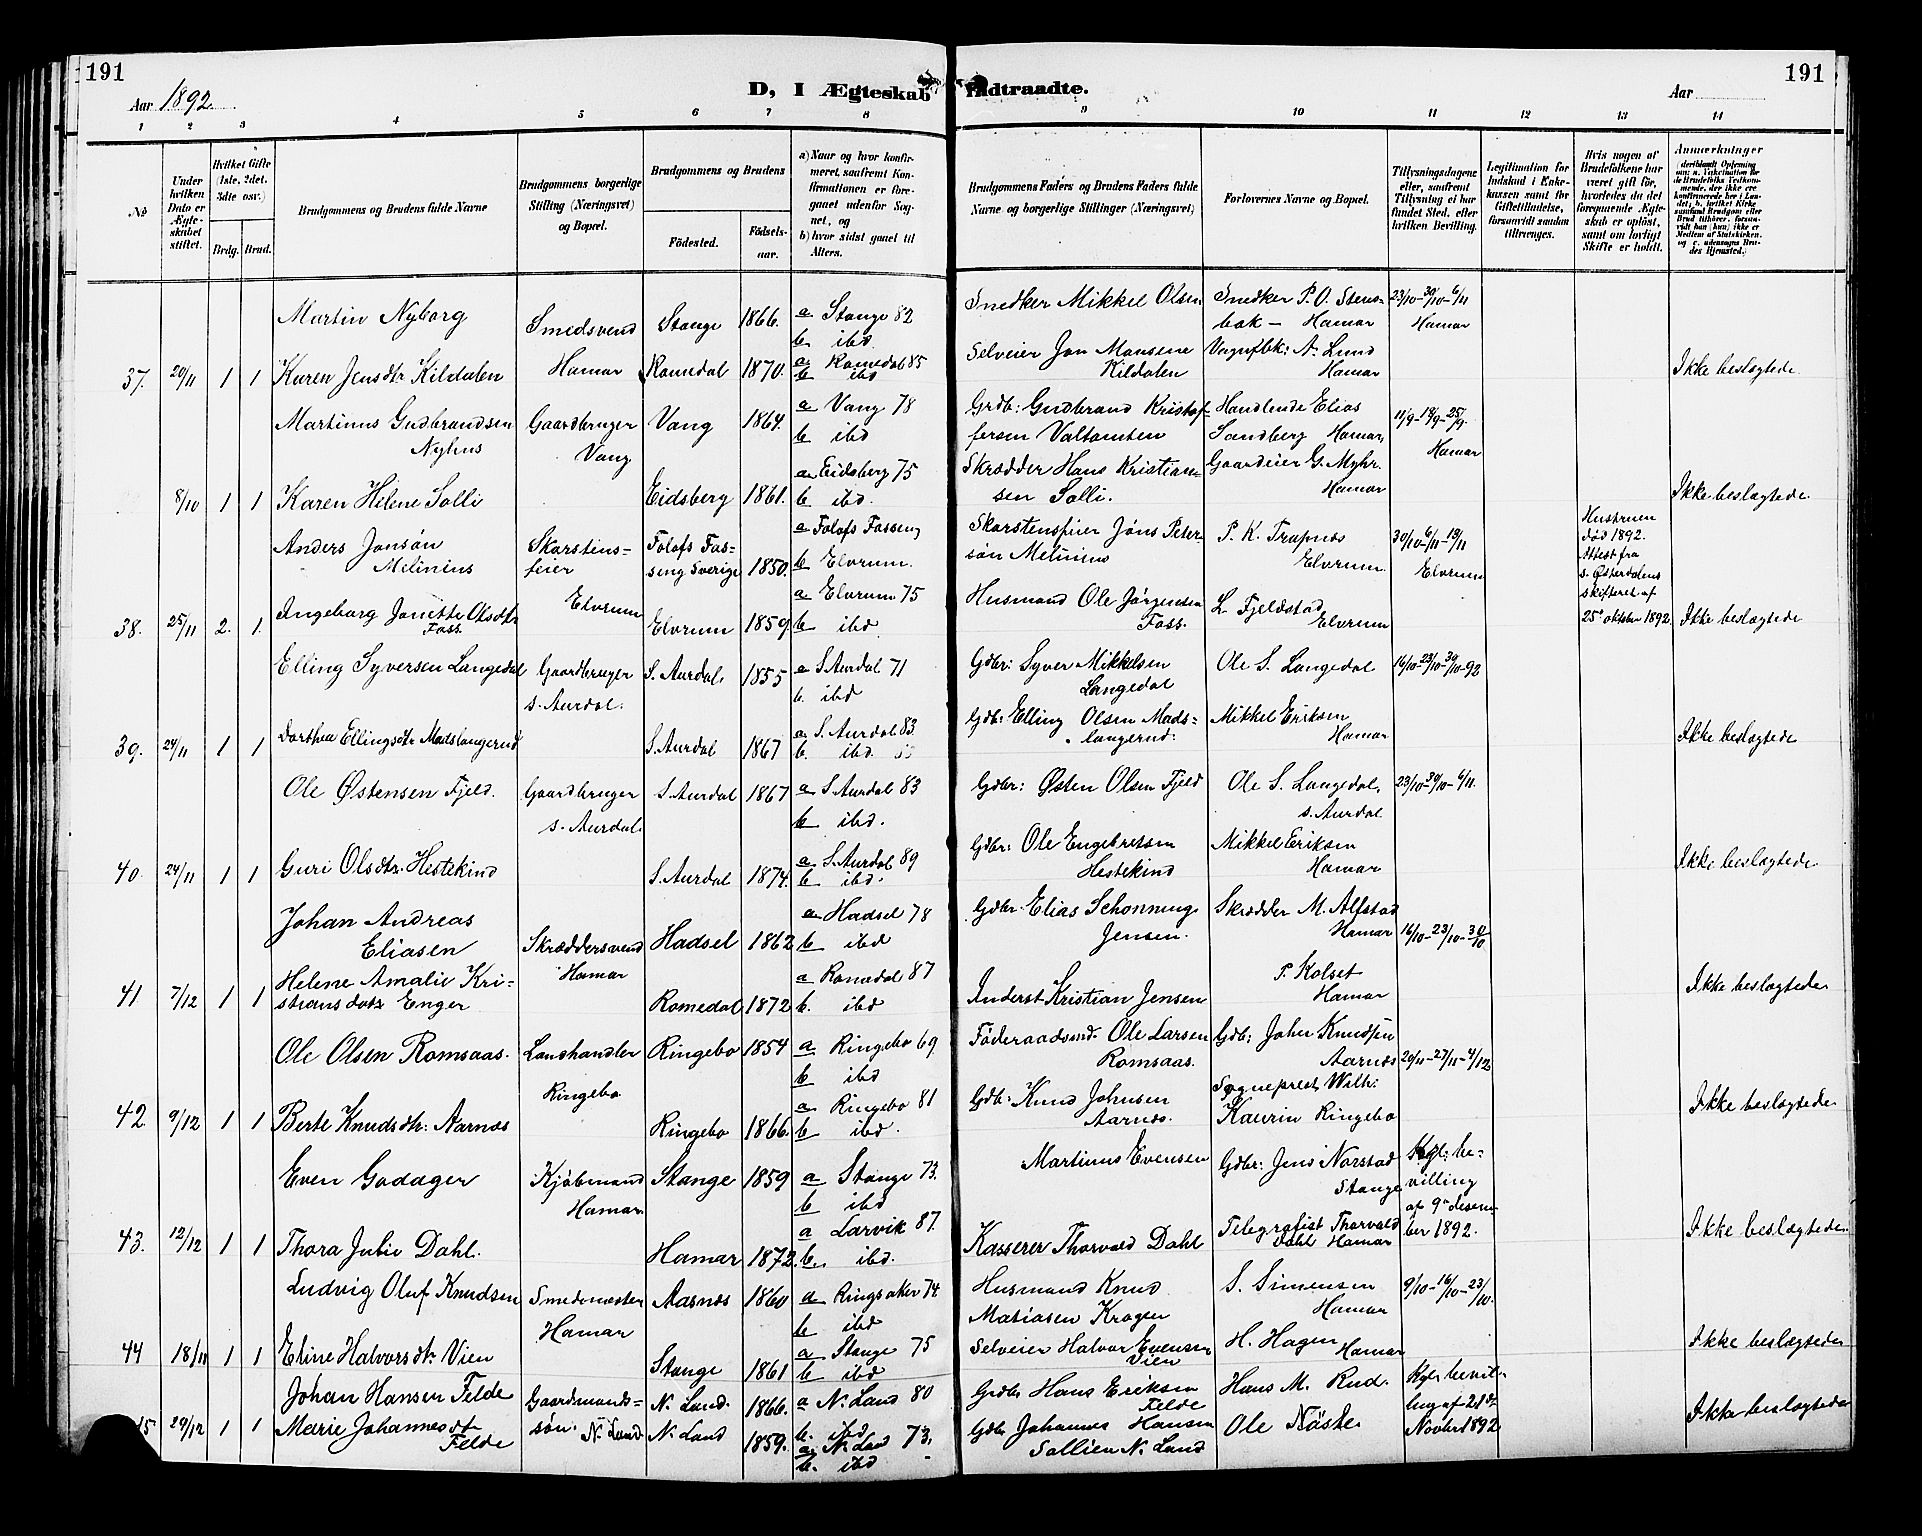 191
191
Aar 1892.
D, I Ægteskab Indtraadte.
Aar
1 2 3 4 5 6 7 8 9 10 11 12 13 14
No
Under hvilken Dato er Ægteskabet stiftet.
Hvilket Gifte (1ste, 2det, 3die osv.)
Brdg. Brud.
Brudgommens og Brudens fulde Navne
Brudgommens borgerlige Stilling (Næringsvei) og Bopæl.
Brudgommens og Brudens
Födested.
Födsels-aar.
a) Naar og hvor konfirmeret, saafremt Konfirmationen er foregaaet udenfor Sognet, og
b) hvor sidst gaaet til Alters.
Brudgommens Faders og Brudens Faders fulde Navne og borgerlige Stillinger (Næringsvei)
Forlovernes Navne og Bopæl.
Tillysningsdagene eller, saafremt Tillysning ei har fundet Sted, efter hvilken Bevilling.
Legitimation for Indskud i Enkekassen samt for Giftetilladelse, forsaavidt saadan tiltrænges.
Hvis nogen af Brudefolkene har været gift før, hvorledes da det foregaaende Ægteskab er oplöst, samt om lovligt Skifte er holdt.
Anmærkninger
Martin Nyborg Smedsvend Stange 1866. a Stange 82 Snedker Mikkel Olsen Snedker P. O. Stens- 23/10-30/10-6/11
b ibd. bak - Hamar Hamar
37. 20/11 1 1 Karen Jensdtr Kildalen Hamar Romedal 1870. a Romedal 85 Selveier Jon Monsene Vognfbk: A. Lund Ikke beslægtede
b ibd Kildalen Hamar
Martinus Gudbrandsen Gaardbruger Vang 1864. a Vang 78 Grdb: Gudbrand Kristof- Handlende Elias 11/9-18/9-25/9.
Nyhus Vang b ibd fersen Valtomten Sandberg Hamar, Hamar
8/10 1 1 Karen Helene Solli Eidsberg 1861. a Eidsberg 75 Skrædder Hans Kristian- Gaardeier G. Myhr. Ikke beslægtede
b ibd. sen Solli. Hamar
Anders Jonsön Skorstens- Folofs Fos- a Folofs Fossen, Skorstensfeier Jöns Peter- P. K. Trapnes 30/10-6/11-13/11 Hustruen
Milinius feier seng Sverige 1850. b Elvrum. sön Melinius Elvrum. Elvrum död 1892.
Attest fra
s. Østerdalens
38. 25/11 2. 1. Ingeborg Jonette Olsdtr Elvrum Elvrum 1859. a Elvrum 75 Husmand Ole Jørgensen L. Fjeldstad skifteret af Ikke beslægtede
Foss. b ibd. Foss. Elvrum 25' oktober 1892
Elling Syversen Langedal Gaardbruger S. Aurdal. 1855 a S. Aurdal 71 Gdbr: Syver Mikkelsen Ole S. Langedal 16/10-23/10-30/10-92
s. Aurdal. b. ibd Langedal
39. 24/11 1 1 Dorthea Ellingsdtr Madslangerud S. Aurdal 1867 a S. Aurdal 83 Gdb: Elling Olsen Mads- Mikkel Eriksen Ikke beslægtede
b. ibd langerud. Hamar
Ole Østensen Fjeld. Gaardbruger S. Aurdal 1867 a S. Aurdal 83 Gdbr: Østen Olsen Fjeld Ole S. Langedal, 23/10-30/10-6/11.
s. Aurdal. b ibd. s. Aurdal
40. 24/11 1 1 Guri Olsdtr. Hestekind S. Aurdal 1874. a S. Aurdal 89 Gdbr: Ole Engebretsen Mikkel Eriksen Ikke beslægtede
b ibd. Hestekind Hamar
Johan Andreas a Hadsel 78 Gdbr. Elias Schonning Skrædder M. Alfstad
Eliasen Skræddersvend Hadsel 1862 b ibd Jensen. Hamar 16/10-23/10-30/10
41 7/12 1 1 Helene Amalie Kri- Hamar a Romedal 87 P. Kolset Ikke beslægtede
stiansdotr Enger Romedal 1872 b. ibd Inderst Kristian Jensen Hamar
Ole Olsen Romsaas. Landhandler Ringebo 1854 a Ringebo 69 Föderaadsmd. Ole Larsen Gdb: John Knudsen
Ringebo b ibd Romsaas. Aarnes 20/11-27/11-4/12
42. 9/12 1 1 Berte Knudsdtr: Aarnæs Ringebo 1866. a Ringebo 81 Gdb: Knud Johnsen Sogneprest Wilh: Ikke beslægtede
b ibd. Aarnes. Kaurin Ringebo
Even Godager Kjöbmand Stange 1859 a Stange 73. Martinus Evensen Gdbr: Jens Norstad Kgl: be-
Hamar b ibd Stange villing
af 9' desem-
43. 12/12 1 1 Thora Julie Dahl. Hamar 1872. a Larvik 87. Kasserer Thorvald Dahl Telegrafist Thorvald ber 1892. Ikke beslægtede
b. ibd. Dahl Hamar
Ludvig Oluf Knudsen Smedemester Aasnæs 1860 a Ringsaker 74. Husmand Knud S. Simensen 9/10-16/10-23/10.
Hamar b ibd Matiasen Kragen Hamar
44 18/11 1 1 Eline Halvorsdtr Vien Stange 1861 a Stange 75 Selveier Halvor Evensen H. Hagen Hamar Ikke beslægtede
b ibd Vien
Johan Hansen Felde Gaardmands- N. Land. 1866. a N. Land 80 Grdbr Hans Eriksen Hans M. Rud. Kgl. bevil-
b. ibd Felde ling af 21d
45 29/12 1 1 Marie Johannesdt sön. N. Land N. Land 1859. a N. Land 73. Gdbr Johannes Hansen Ole Nöste Novbr 1892 Ikke beslægtede
Felde b. ibd Sollien N. Land